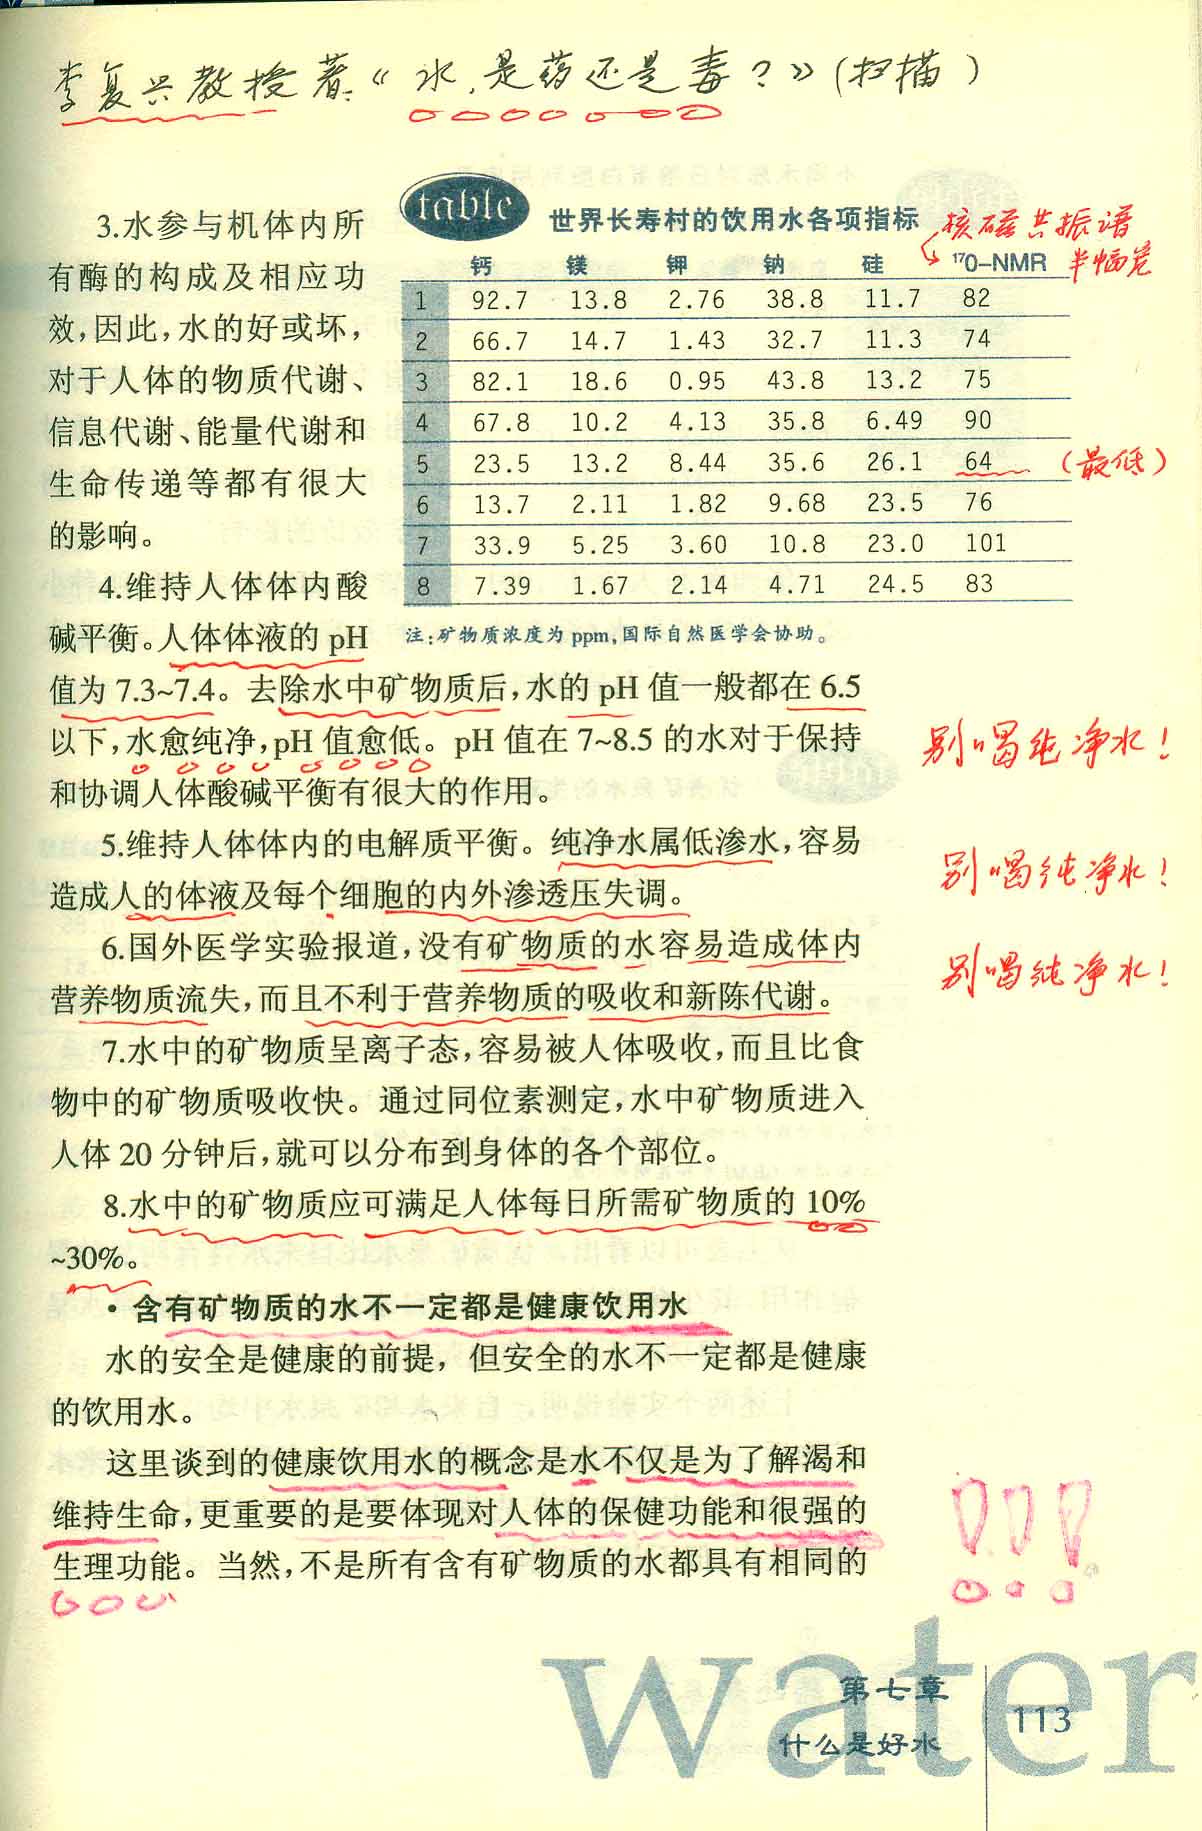 李复兴教授著:《水,是药还是毒?》(扫描)
table 世界长寿村的饮用水各项指标
核磁共振谱
半幅宽
钙 镁 钾 钠 硅 ¹⁷0-NMR
1 92.7 13.8 2.76 38.8 11.7 82
2 66.7 14.7 1.43 32.7 11.3 74
3 82.1 18.6 0.95 43.8 13.2 75
4 67.8 10.2 4.13 35.8 6.49 90
5 23.5 13.2 8.44 35.6 26.1 64 (最低)
6 13.7 2.11 1.82 9.68 23.5 76
7 33.9 5.25 3.60 10.8 23.0 101
8 7.39 1.67 2.14 4.71 24.5 83
注:矿物质浓度为 ppm,国际自然医学会协助。
3.水参与机体内所
有酶的构成及相应功
效,因此,水的好或坏,
对于人体的物质代谢、
信息代谢、能量代谢和
生命传递等都有很大
的影响。
4.维持人体体内酸
碱平衡。人体体液的 pH
值为 7.3~7.4。去除水中矿物质后,水的 pH 值一般都在 6.5
以下,水愈纯净,pH 值愈低。pH 值在 7~8.5 的水对于保持
别喝纯净水!
和协调人体酸碱平衡有很大的作用。
5.维持人体体内的电解质平衡。纯净水属低渗水,容易
造成人的体液及每个细胞的内外渗透压失调。
别喝纯净水!
6.国外医学实验报道,没有矿物质的水容易造成体内
营养物质流失,而且不利于营养物质的吸收和新陈代谢。
别喝纯净水!
7.水中的矿物质呈离子态,容易被人体吸收,而且比食
物中的矿物质吸收快。通过同位素测定,水中矿物质进入
人体 20 分钟后,就可以分布到身体的各个部位。
8.水中的矿物质应可满足人体每日所需矿物质的 10%
~30%。
·含有矿物质的水不一定都是健康饮用水
水的安全是健康的前提，但安全的水不一定都是健康
的饮用水。
这里谈到的健康饮用水的概念是水不仅是为了解渴和
维持生命,更重要的是要体现对人体的保健功能和很强的
生理功能。当然,不是所有含有矿物质的水都具有相同的
!!!
water
第七章
什么是好水
113